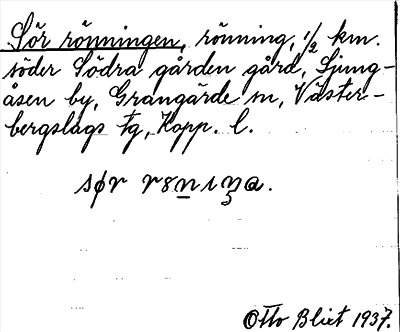 Sör rönningen, rönning, 1/2 km.
söder Södra gården gård, Ljung-
åsen by, Grangärde sn, Väster-
bergslags tg, Kopp. l.
sør
Otto Blixt 1937.